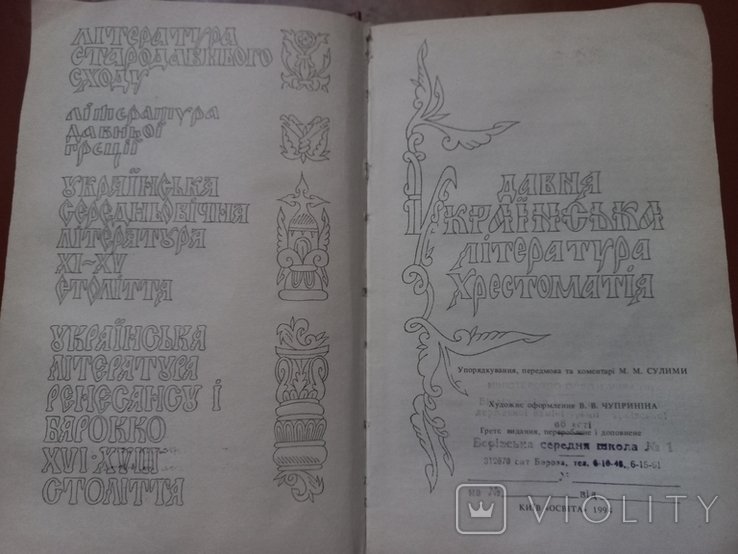 ЛІТЕРАТУРА
СТАРОДАВНЬОГО
СХОДУ
ЛІТЕРАТУРА
ДАВНЬОЇ
ГРЕЦІЇ
УКРАЇНСЬКА
СЕРЕДНЬОВІЧНА
ЛІТЕРАТУРА
XI–XV
СТОЛІТТЯ
УКРАЇНСЬКА
ЛІТЕРАТУРА
РЕНЕСАНСУ І
БАРОККО
XVI–XVIII
СТОЛІТТЯ
ДАВНЯ
УКРАЇНСЬКА
ЛІТЕРАТУРА
ХРЕСТОМАТІЯ
Упорядкування, передмова та коментарі М. М. СУЛИМИ
Художнє оформлення В. В. ЧУПРИНІНА
Третє видання, перероблене і доповнене
середня школа № 1
312070 смт Борова, тел. 6-15-61
від
КИЇВ «ОСВІТА»
VIOLITY